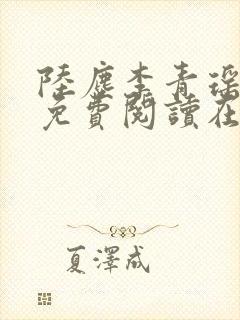 陸塵李青瑤
免費閱讀在
夏澤成